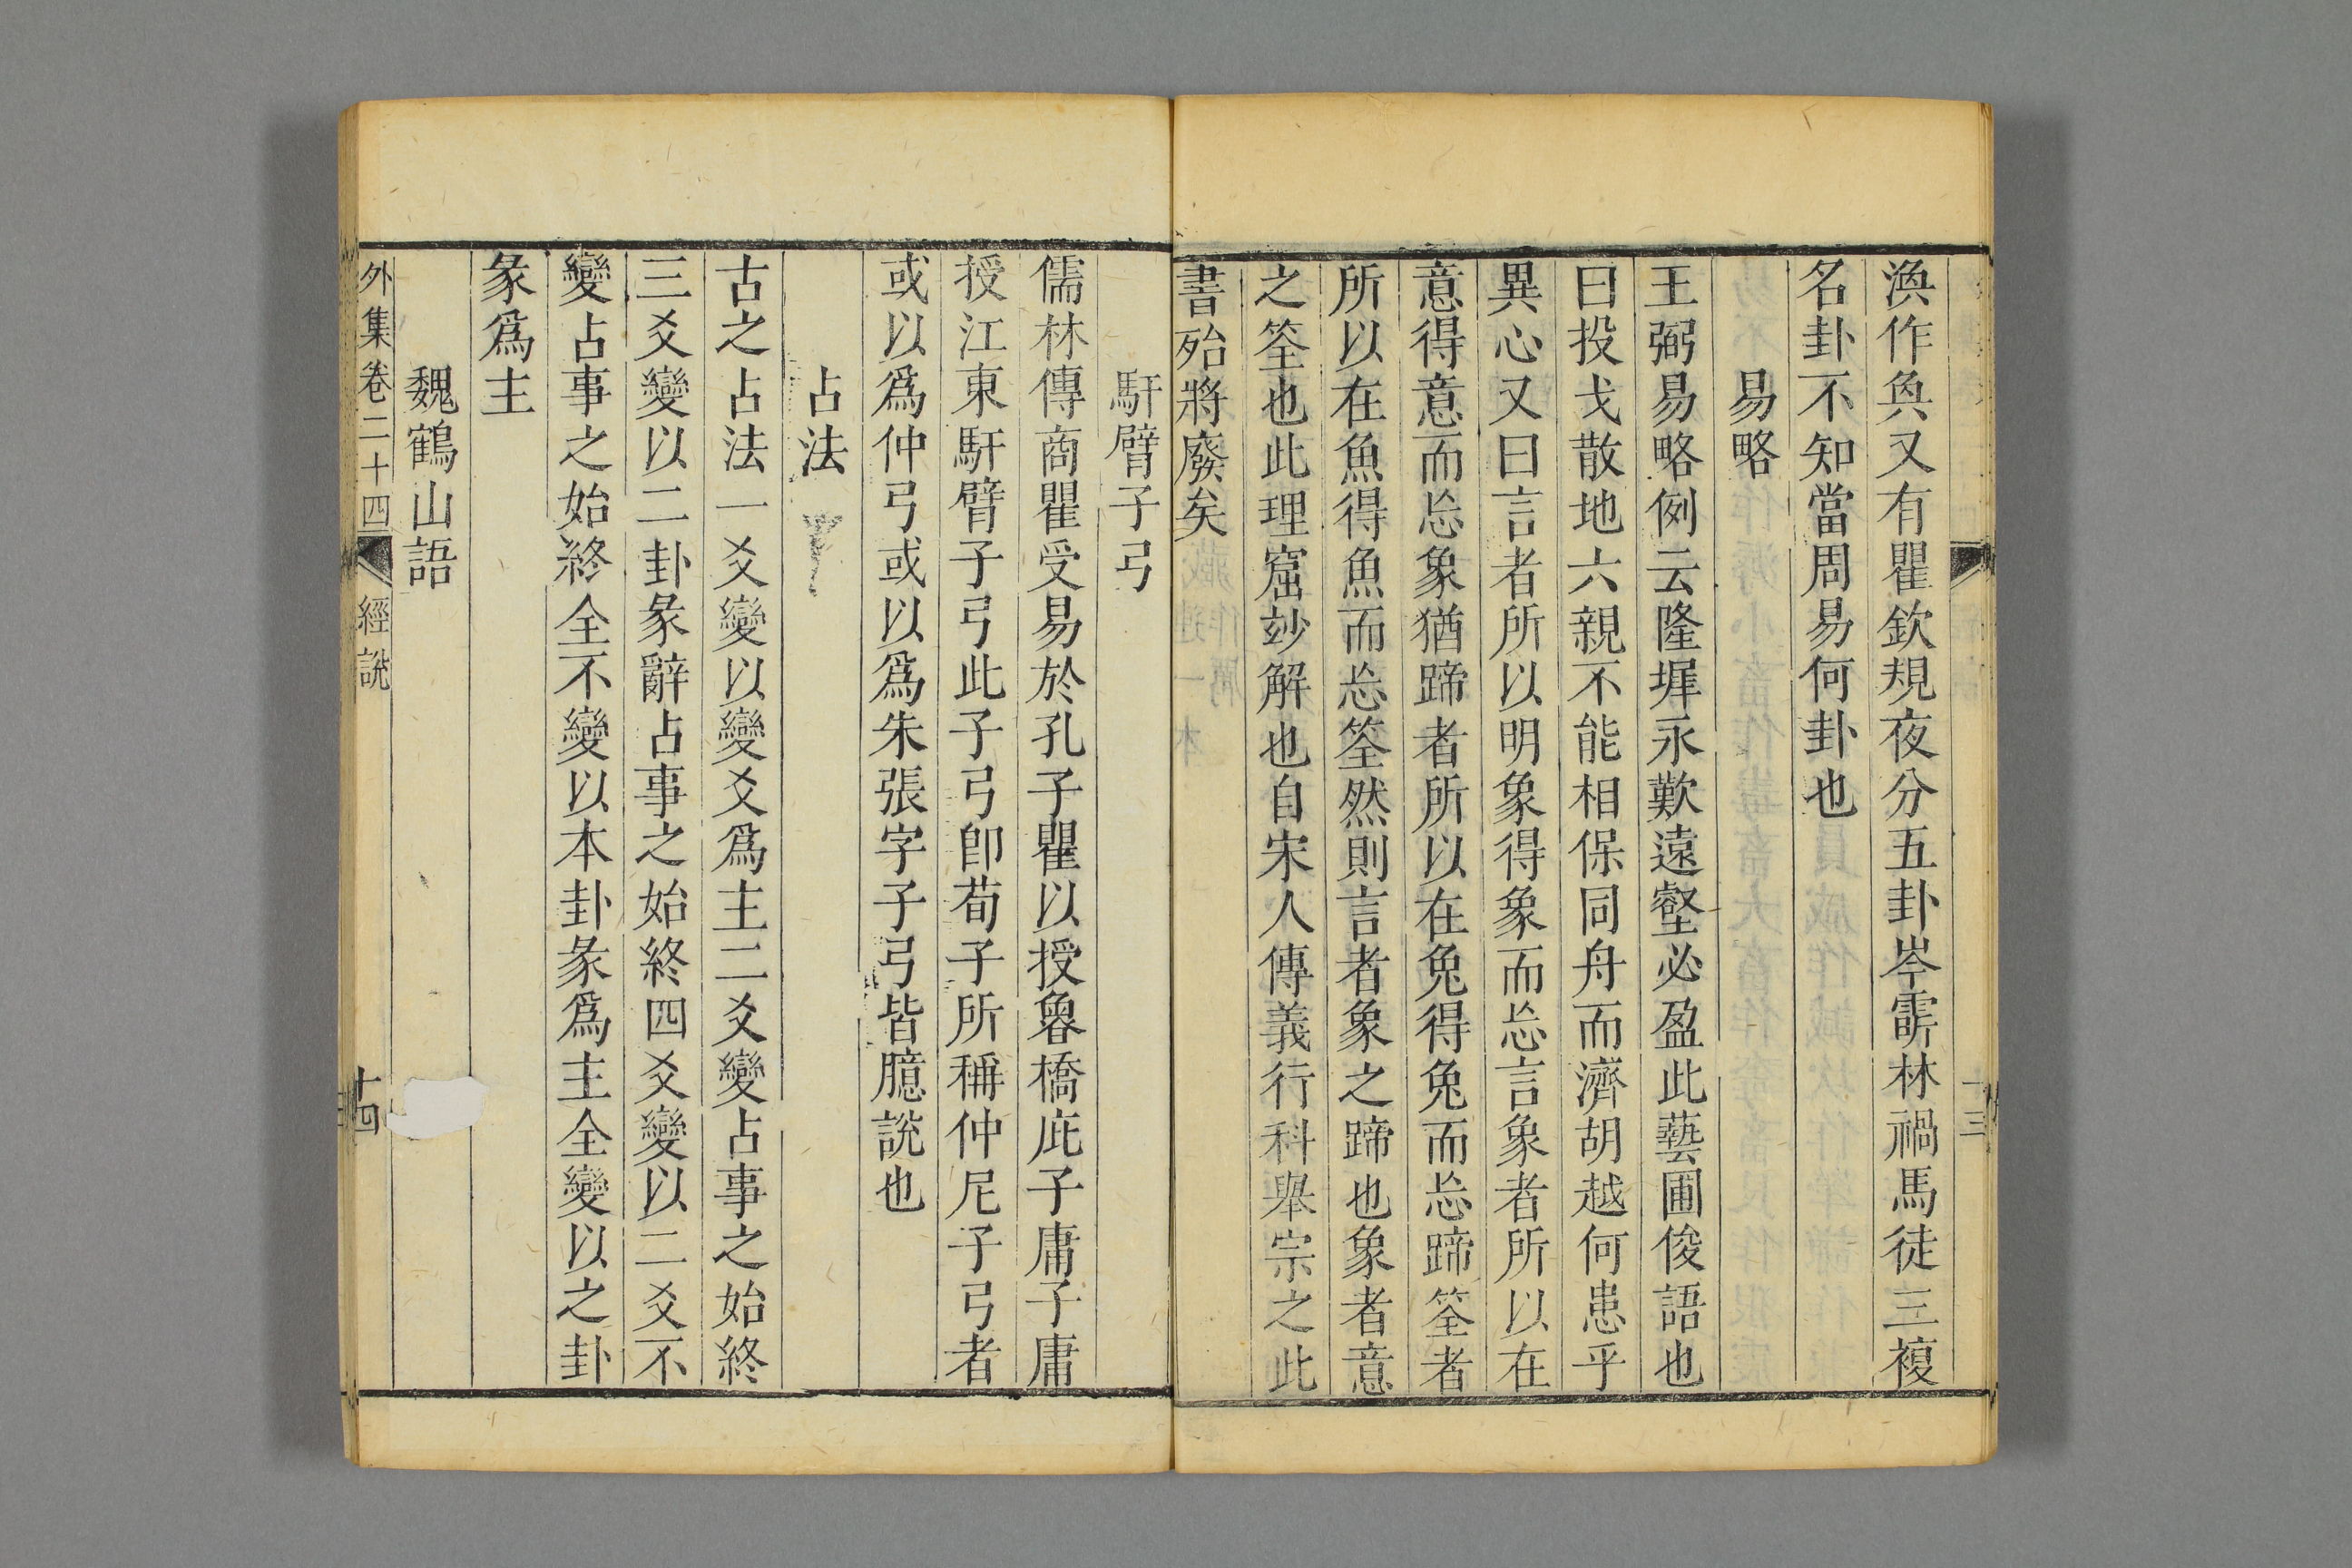 渙作奐又有瞿欽規夜分五卦岑䨷林禍馬徒三複
名卦不知當周易何卦也
易略
王弼易略例云隆墀永歎遠壑必盈此藝圃俊語也
曰投戈散地六親不能相保同舟而濟胡越何患乎
異心又曰言者所以明象得象而忘言象者所以在
意得意而忘象猶蹄者所以在兔得兔而忘蹄筌者
所以在魚得魚而忘筌然則言者象之蹄也象者意
之筌也此理窟玅解也自宋人傳義行科舉宗之此
書殆將廢矣
十三
馯臂子弓
儒林傳商瞿受易於孔子瞿以授魯橋庇子庸子庸
授江東馯臂子弓此子弓卽荀子所稱仲尼子弓者
或以爲仲弓或以爲朱張字子弓皆臆說也
占法
古之占法一爻變以變爻爲主二爻變占事之始終
三爻變以二卦彖辭占事之始終四爻變以二爻不
變占事之始終全不變以本卦彖爲主全變以之卦
彖爲主
魏鶴山語
外集卷二十四 經說 十四